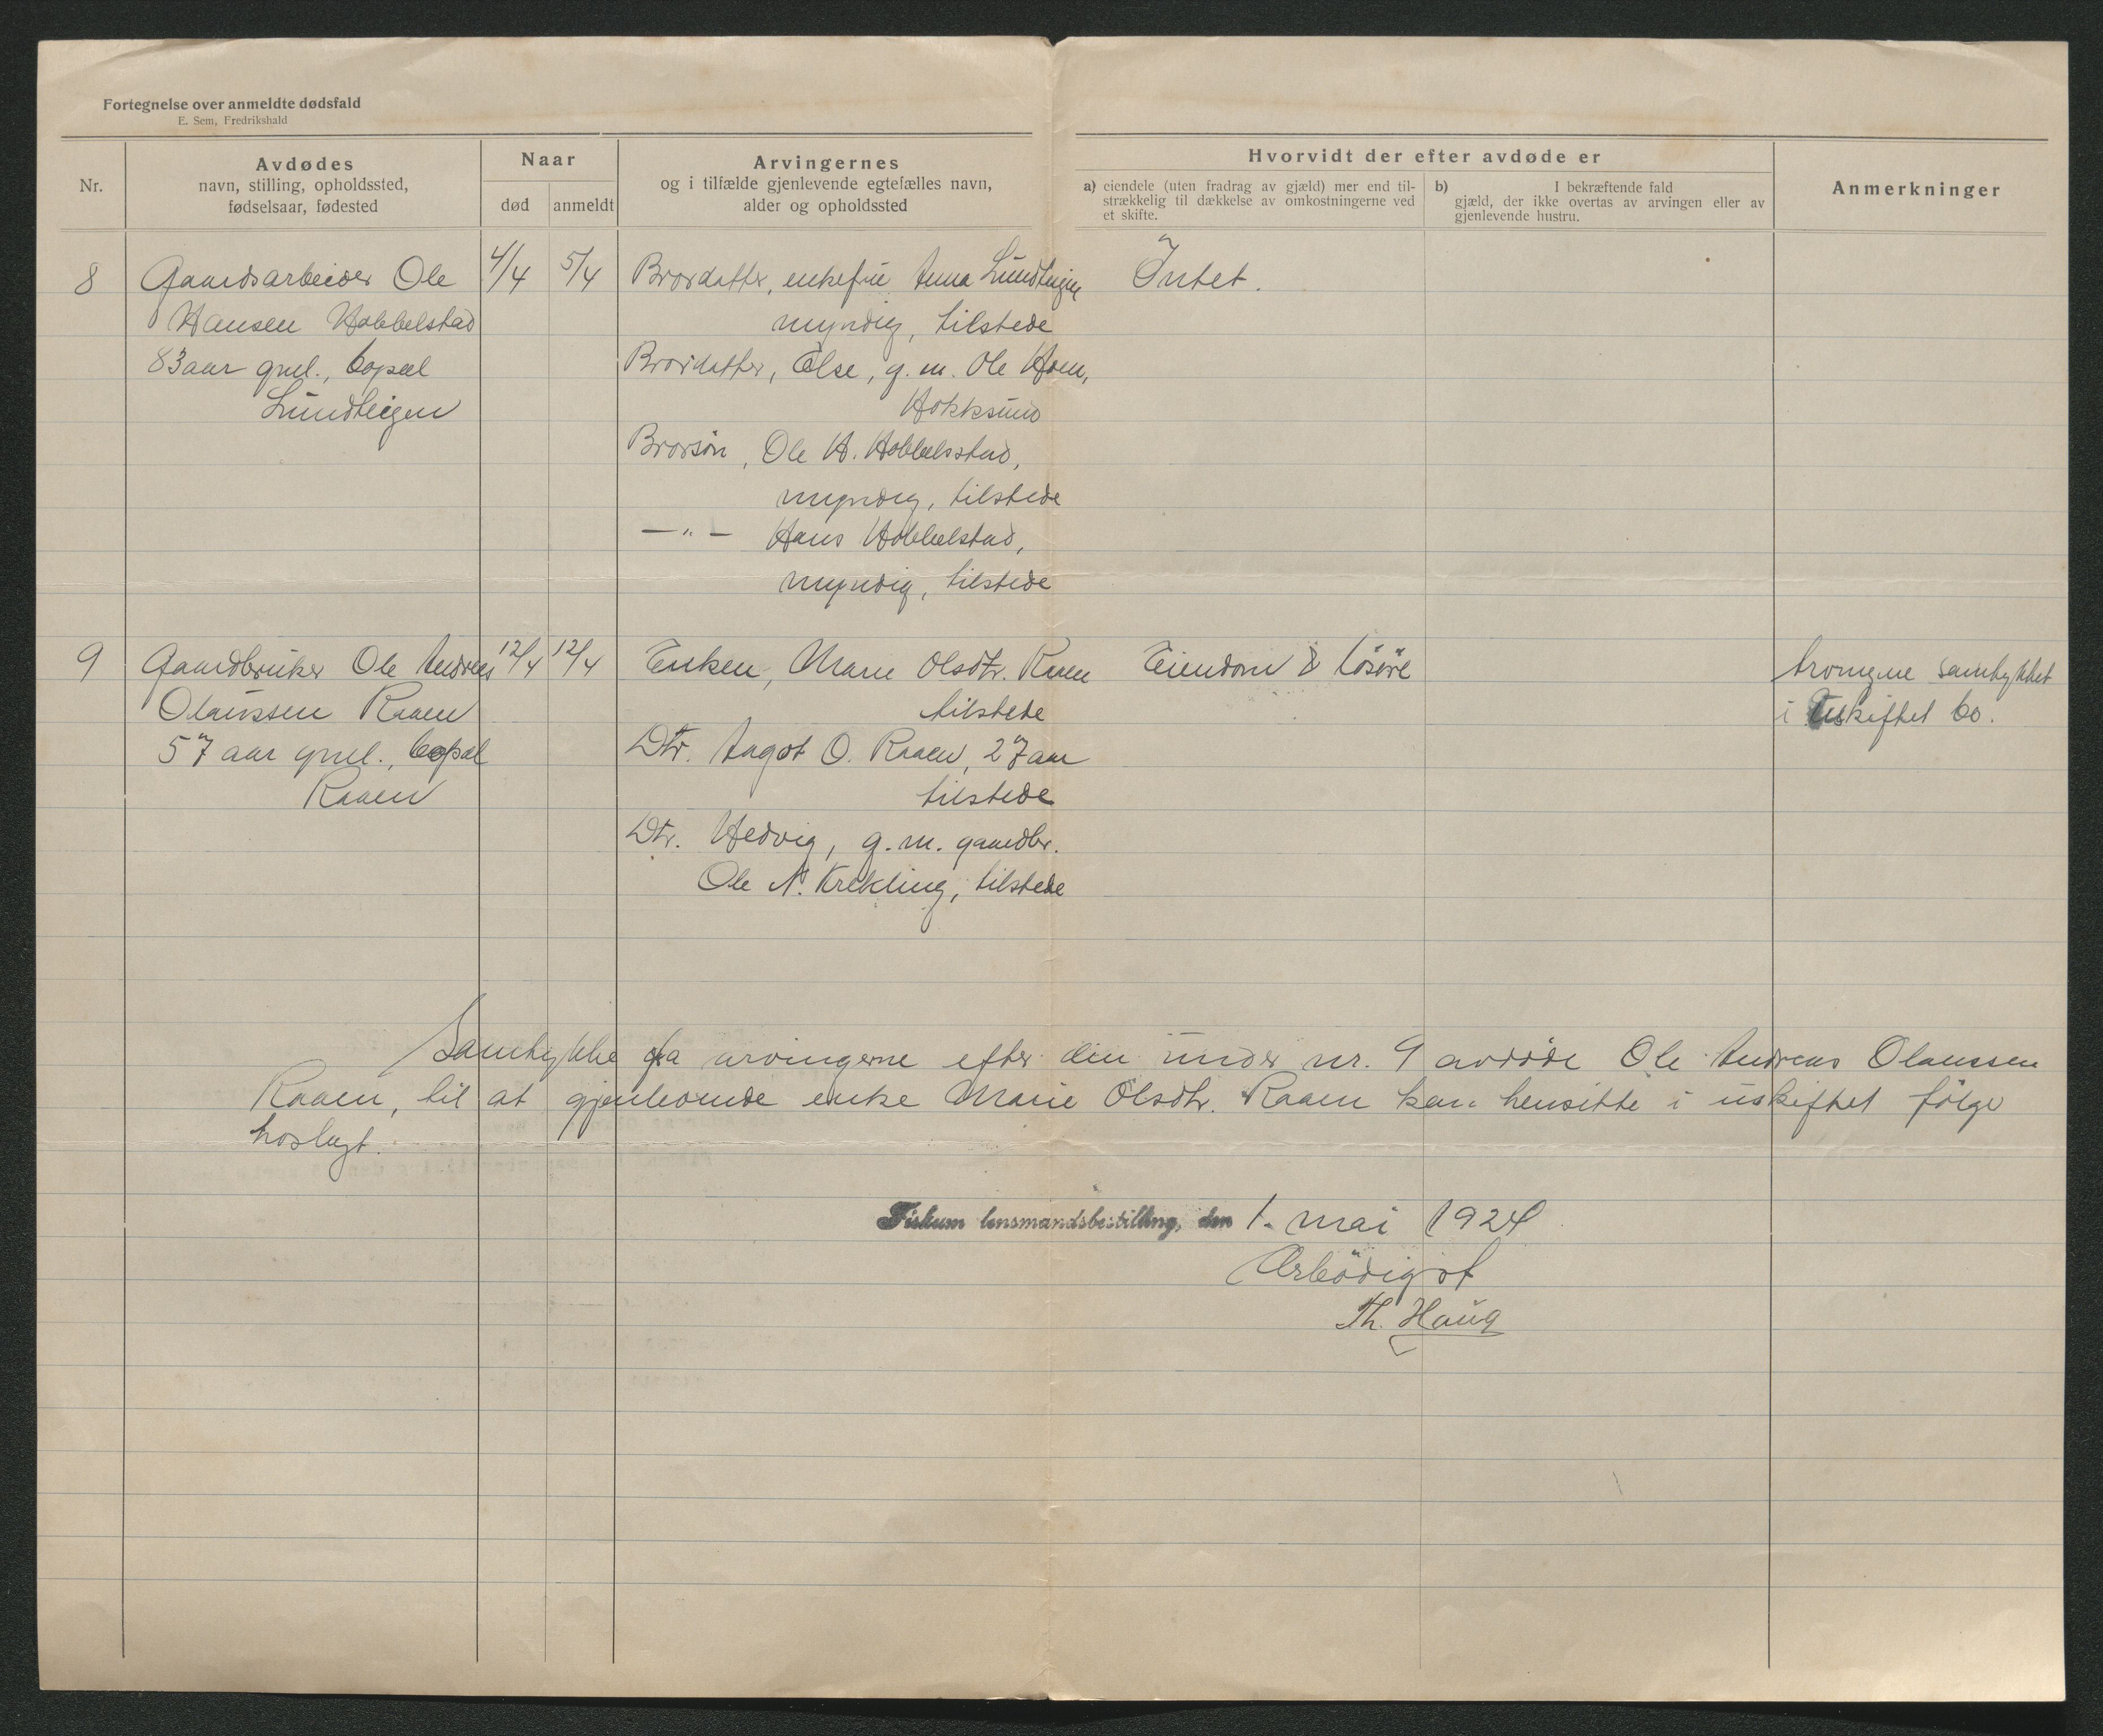 Fortegnelse over anmeldte dødsfald
E. Sem, Fredrikshald
Nr.
Avdødes
navn, stilling, opholdssted,
fødselsaar, fødested
Naar
død
anmeldt
Arvingernes
og i tilfælde gjenlevende egtefælles navn,
alder og opholdssted
Hvorvidt der efter avdøde er
a) eiendele (uten fradrag av gjæld) mer end til-
strækkelig til dækkelse av omkostningerne ved
et skifte.
b) I bekræftende fald
gjæld, der ikke overtas av arvingen eller av
gjenlevende hustru.
Anmerkninger
8 Gaardsarbeider Ole 4/4 5/4 Brordatter, enkefru Anna Lundteigen Intet.
Hansen Hobbelstad myndig, tilstede
83 aar gml., bopæl Brordatter, Else, g. m. Ole Hoen,
Lundteigen Hokksund
Brorsøn, Ole H. Hobbelsstad,
myndig, tilstede
—„— Hans Hobbelstad,
myndig, tilstede
9 Gaardbruker Ole Andreas 12/4 12/4 Enken, Marie Olsdtr. Raaen Eiendom & løsøre Arvingene samtykket
Olaussen Raaen tilstede i uskiftet bo.
57 aar gml., bopæl Dtr. Aagot O. Raaen, 27 aar
Raaen tilstede
Dtr. Hedvig, g. m. gaardbr.
Ole N. Krekling, tilstede
Samtykke fra arvingerne efter den under nr. 9 avdøde Ole Andreas Olaussen
Raaen, til at gjenlevende enke Marie Olsdtr. Raaen kan hensitte i uskiftet følge
hoslagt.
Fiskum lensmandsbestilling, den 1. mai 1924
Ærbødigst
Th. Haug